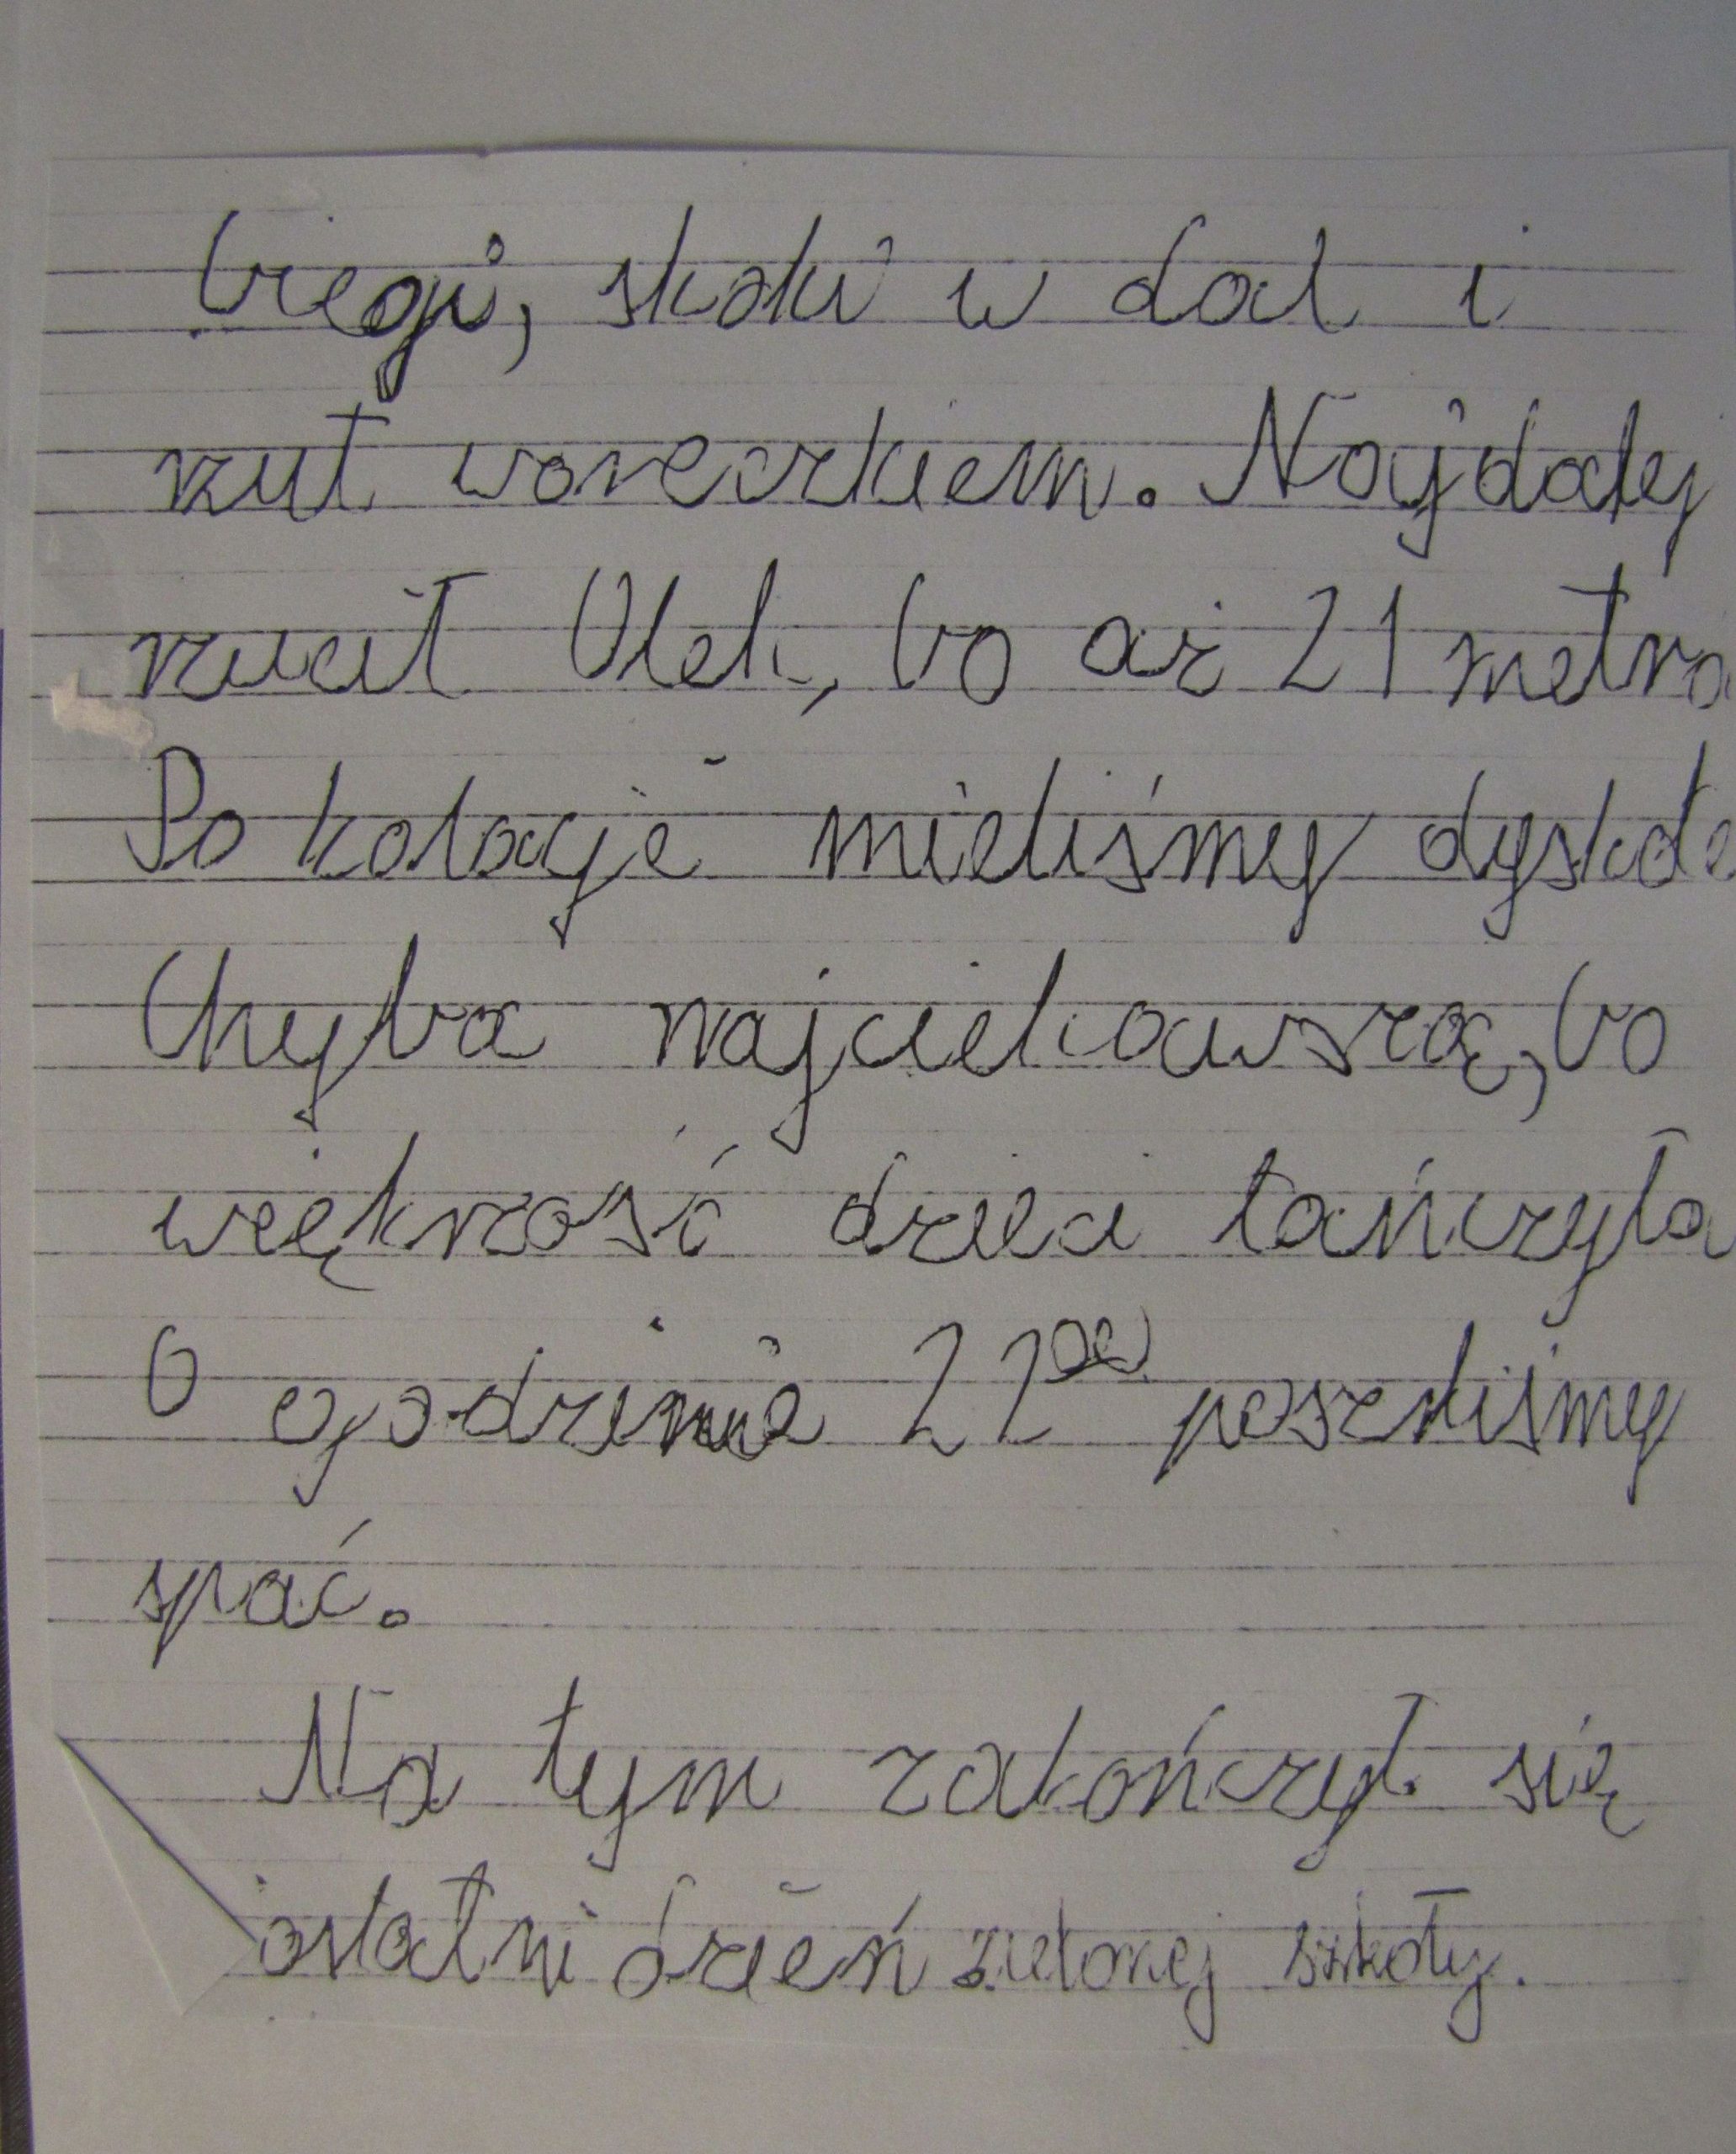 biegi, skoki w dal i
rzut woreczkiem. Najdalej
rzucił Olek, bo aż 21 metra
Po kolacje mieliśmy dysko
Chyba najciekawszą, bo
więkrzość dzieci tańczyła
O godzinie 22⁰⁰ poszliśmy
spać.
Na tym zakończył się
ostatni dzień zielonej szkoły.